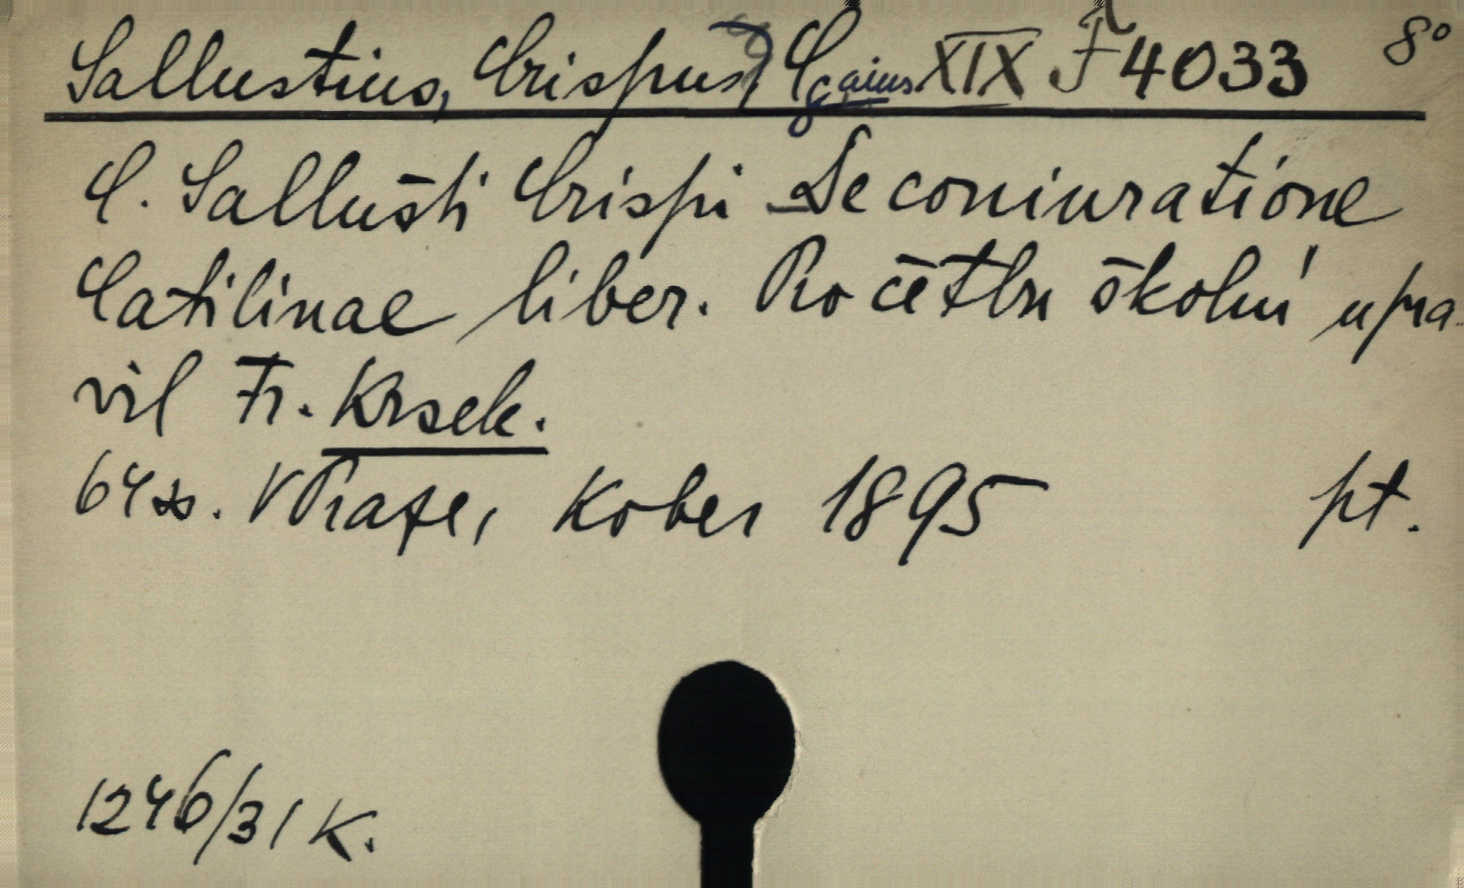 Sallustius, Crispus, C Gaius XIX F 4033 8°
C. Sallusti Crispi De coniuratione
Catilinae liber. Pro četbu školní upra-
vil Fr. Krsek.
64 s. V Praze, Kober 1895 pt.
1246/31 K.